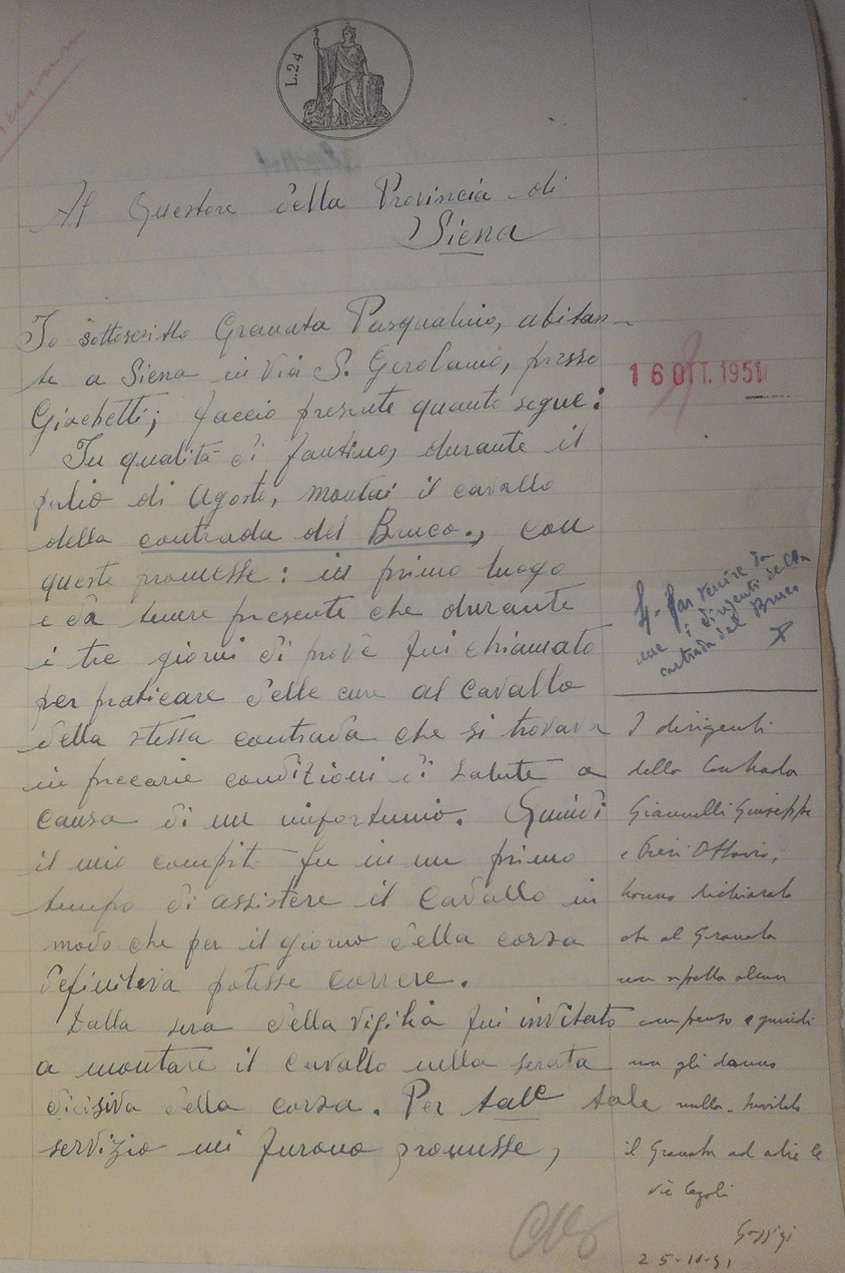 L.24
Al Questore della Provincia di
Siena
Io sottoscritto Granata Pasqualino, abitan-
te a Siena in Via S. Gerolamo, presso
Giachetti; faccio presente quanto segue:
In qualità di fantino, durante il
palio di Agosto, montai il cavallo
della contrada del Bruco., con
queste promesse: in primo luogo
e da tenere presente che durante
i tre giorni di prove fui chiamato
per praticare delle cure al cavallo
della stessa contrada che si trovava
in precarie condizioni di salute a
causa di un infortunio. Quindi
il mio compito fu in un primo
tempo di assistere il cavallo in
modo che per il giorno della corsa
definitiva potesse correre.
Dalla sera della vigilia fui invitato
a montare il cavallo nella serata
dicisiva della corsa. Per tale tale
servizio mi furono promesse,
16 OTT. 1951
far venire da
me i dirigenti della
contrada del Bruco
I dirigenti
della Contrada
Giannelli Giuseppe
e Pieri Ottavio,
hanno dichiarato
che al Granata
non spetta alcun
compenso e quindi
non gli danno
nulla. Invitato
il Granata ad adire le
vie legali
25-10-51